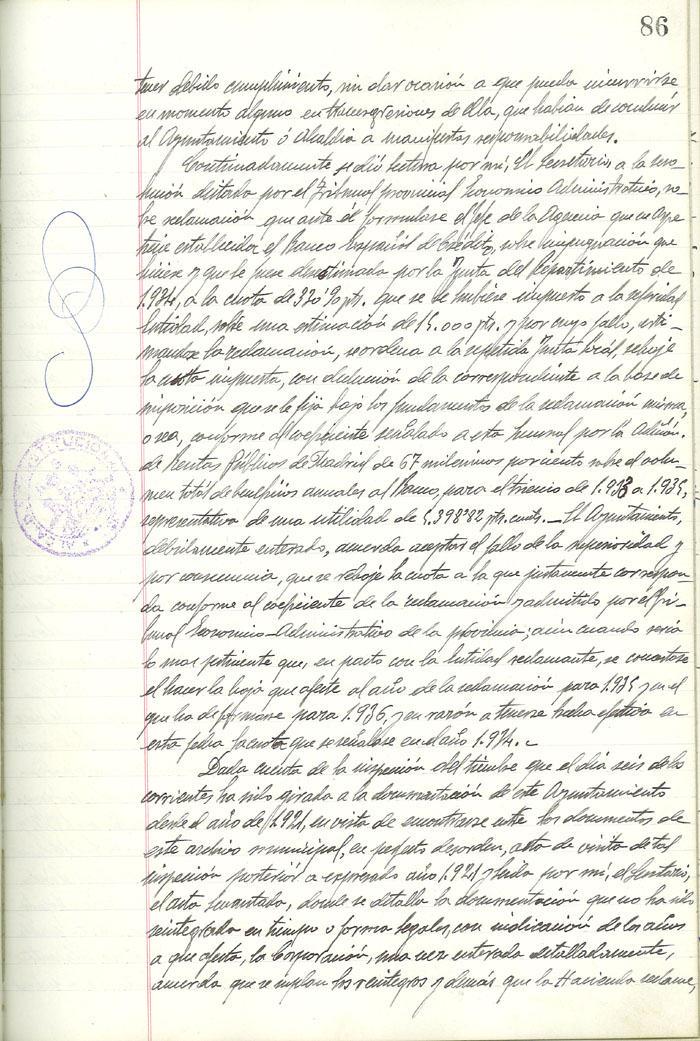 86
tener debido cumplimiento, sin dar ocasión a que pueda incurrirse
en momento alguno en trasgresiones de ella, que habían de conducir
al Ayuntamiento ó Alcaldía a manifiestas responsabilidades.
Continuadamente se dió lectura por mí, El Secretario, a la reso-
lución dictada por el Tribunal provincial Economico Administrativo, so-
bre reclamación que ante él formulase el Jefe de la Agencia que en
tiene establecida el Banco Español de Crédito, sobre impugnación que
hiciese y que le fuese desestimada por la Junta del Repartimiento de
1.934, a la cuota de 320'90 pts. que se le hubiese impuesto a la referida
Entidad, sobre una estimación de 15.000 pts. y por cuyo fallo, esti-
mandose la reclamación, se ordena a la repetida Junta Gral. rebaje
la cuota impuesta, con deducción de la correspondiente a la base de
imposición que se le fija bajo los fundamentos de la reclamación misma,
o sea, conforme al coeficiente señalado a esta sucursal por la Admón.
de Rentas Públicas de Madrid de 67 milesimas por ciento sobre el volu-
men total de beneficios anuales al Banco, para el trienio de 1.933 a 1.935,
representativa de una utilidad de 5.398'82 pts. cents. _ El Ayuntamiento,
debidamente enterado, acuerda aceptar el fallo de la superioridad y
por consecuencia, que se rebaje la cuota a la que justamente correspon-
da conforme al coeficiente de la reclamación y admitido por el Tri-
bunal Economico-Administrativo de la provincia; aún cuando sería
lo mas pertinente que, en pacto con la Entidad reclamante, se concertase
el hacer la baja que afecte al año de la reclamación para 1.935 y en el
que ha de formarse para 1.936, y en razón a tenerse hecha efectiva en
esta fecha la cuota que se señalase en el año 1.934._
Dada cuenta de la inspección del timbre que el día seis de los
corrientes ha sido girada a la documentación de este Ayuntamiento
desde el año de 1.921, en vista de encontrarse los documentos de
este archivo municipal, en perfecto desorden, acta de visita de tal
inspección posterior a expresado año 1.921 y leida por mí, el Secretario,
el acta levantada, donde se detalla la documentación que no ha sido
reintegrada en tiempo o forma legales, con indicación de los años
a que afecta, la Corporación, una vez enterada detalladamente,
acuerda que se cumplan los reintegros y demás que la Hacienda reclame,